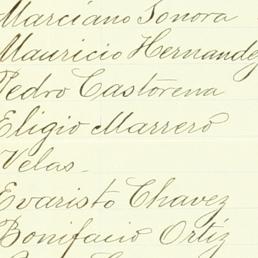 Marciano Sonora
Mauricio Hernandez
Pedro Castorena
Eligio Marrero
Velas.
Evaristo Chavez
Bonifacio Ortiz